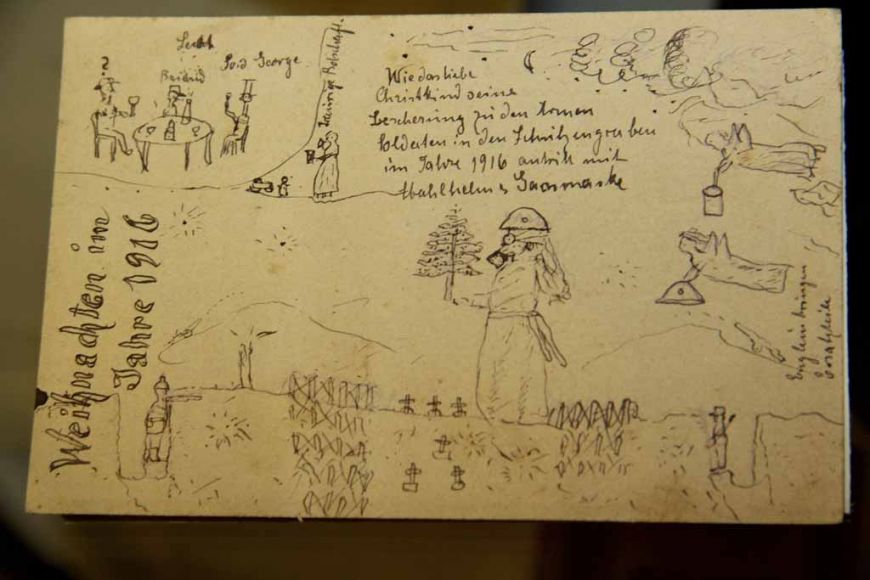 ?
Sekt
Loid George
Traurige Botschaft.
Wie das liebe
Christkind seine
Bescherung zu den armen
Soldaten in den Schützengraben
im Jahre 1916 antritt mit
Stahlhelm &
Weihnachten im
Jahre 1916
Englein bringen